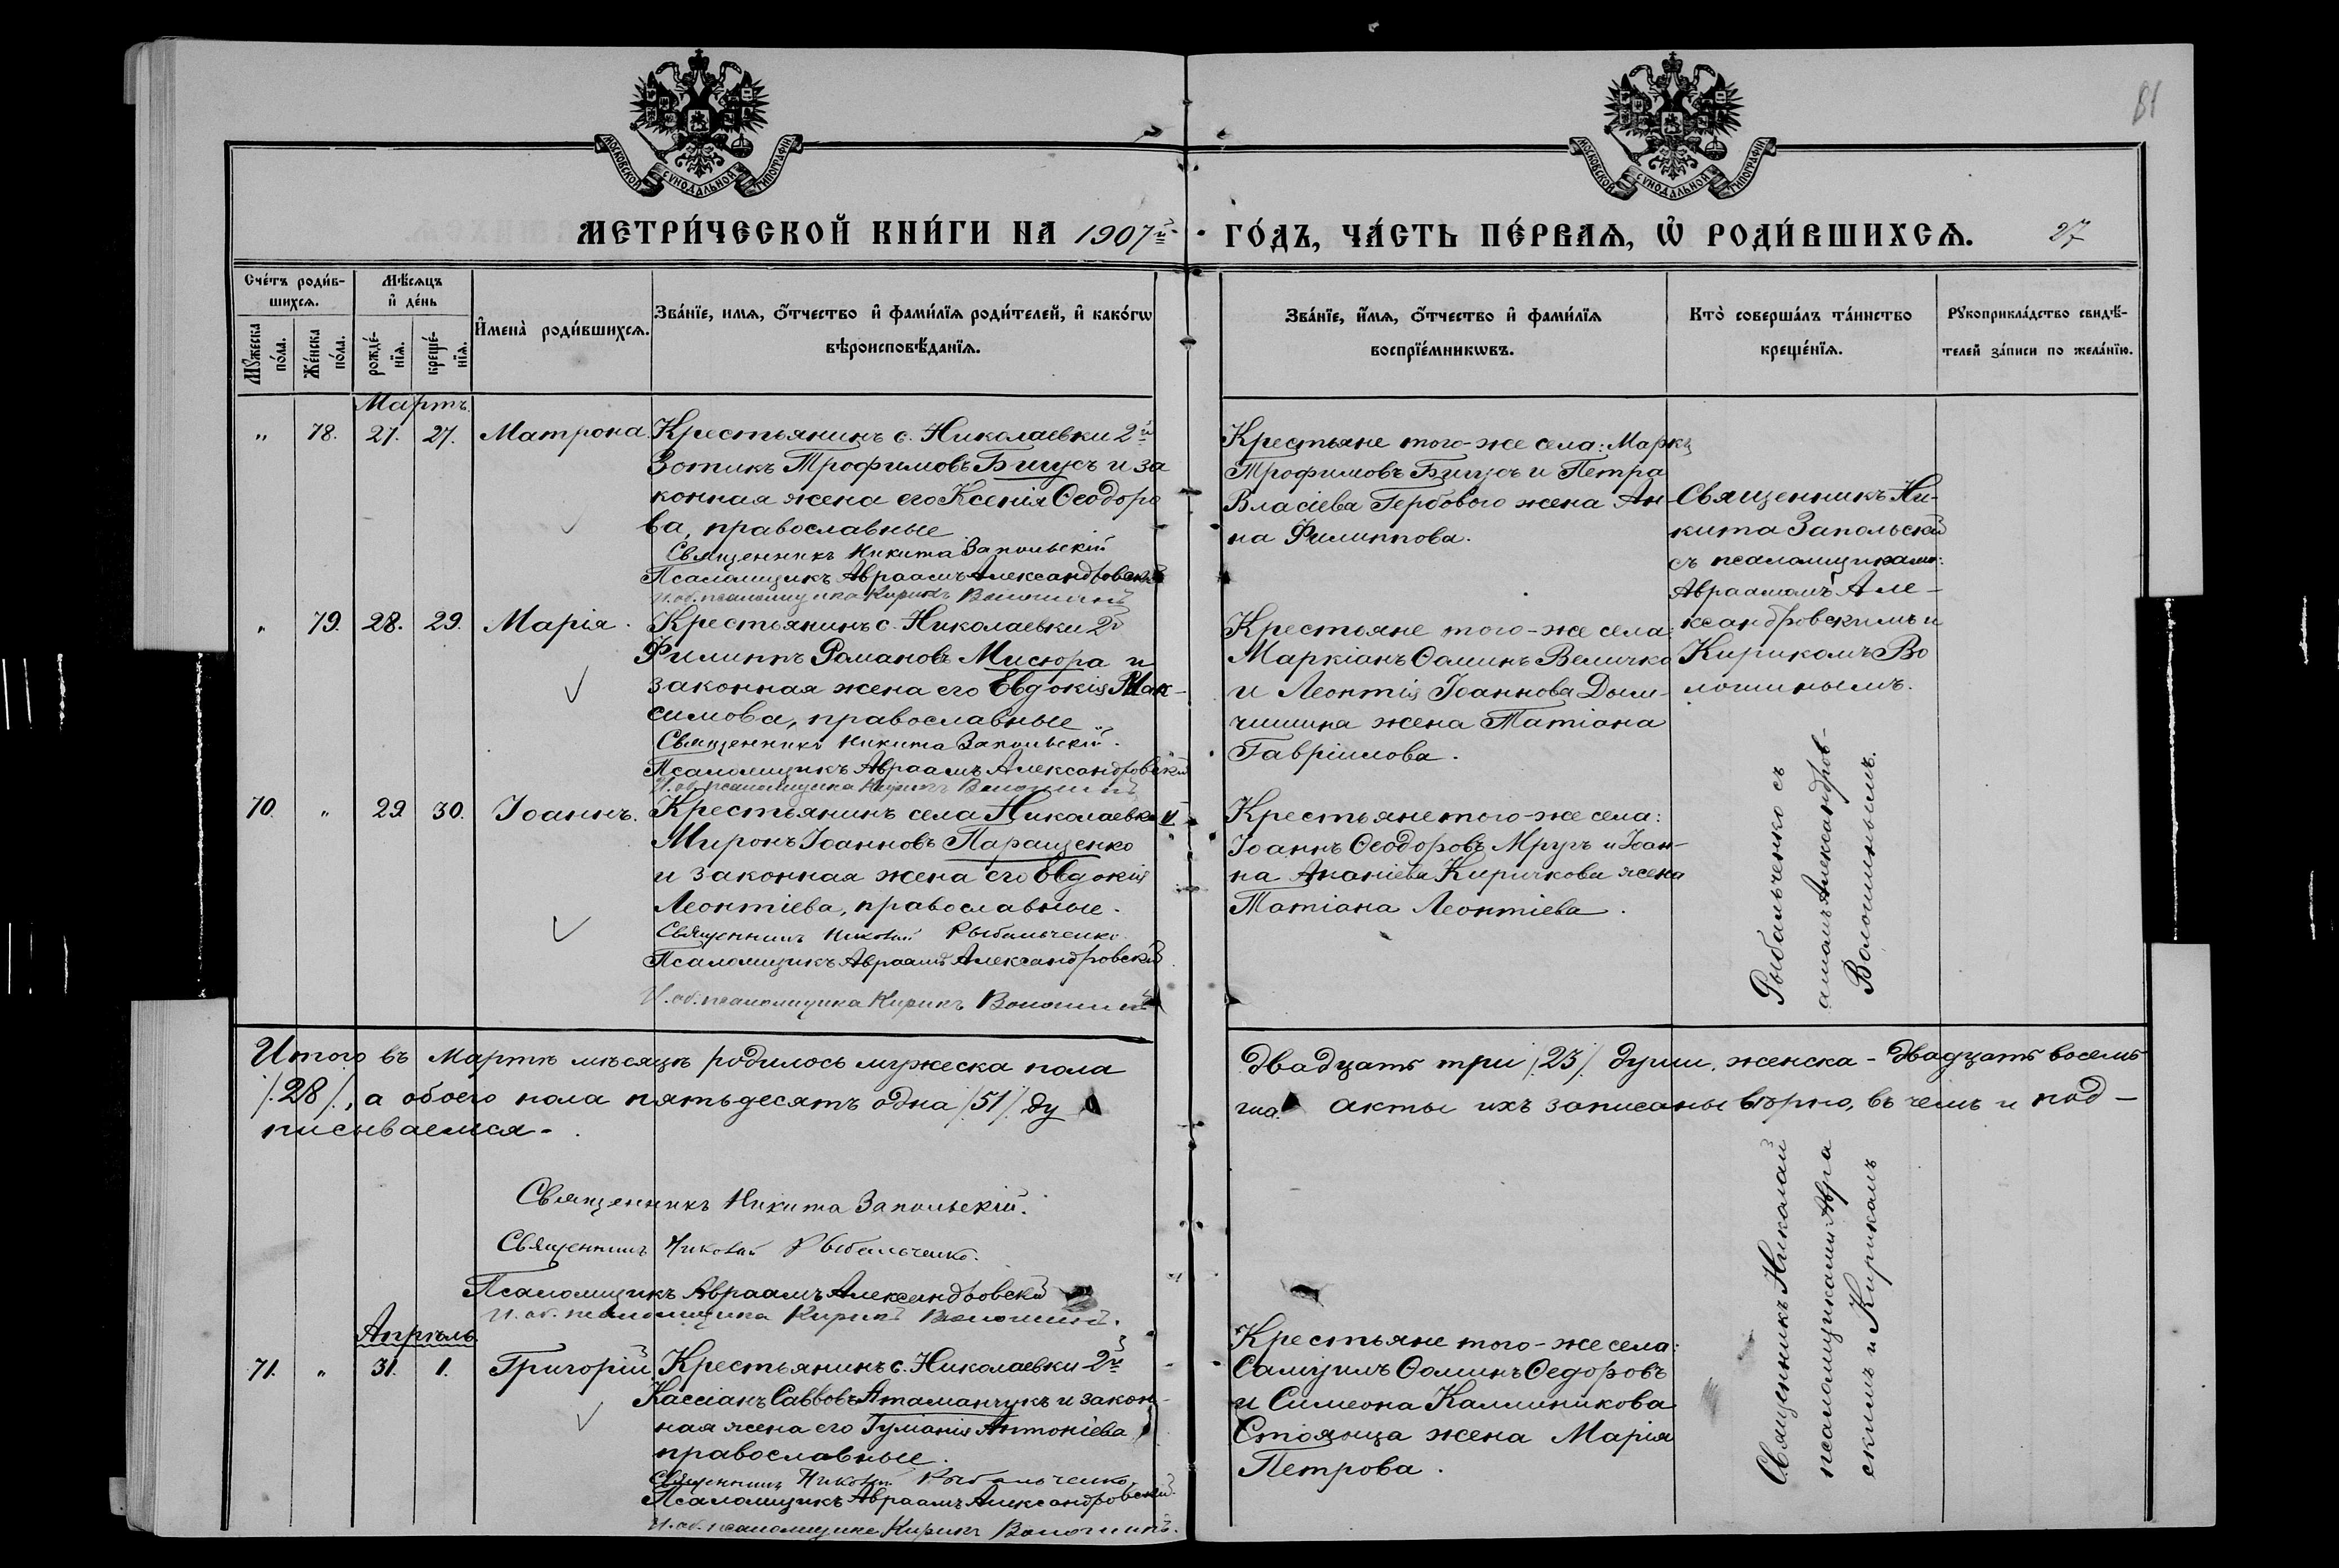 81
МОСКОВСКОЙ СѴНОДАЛЬНОЙ ТИПОГРАФІИ.
МОСКОВСКОЙ СѴНОДАЛЬНОЙ ТИПОГРАФІИ.
МЕТРИ́ЧЕСКОЙ КНИ́ГИ НА 1907й
ГО́ДЪ, ЧА́СТЬ ПЕ́РВАѦ, Ѡ҆ РОДИ́ВШИХСѦ. 27
Сче́тъ роди́в-
шихсѧ.
Мꙋ́жеска по́ла.
Же́нска по́ла.
Мѣ́сѧцъ
и҆ де́нь
рожде́-
нїѧ.
креще́-
нїѧ.
И҆мена̀ роди́вшихсѧ.
Зва́нїе, имѧ, ѻ҆́тчество и҆ фами́лїѧ роди́телей, и҆ како́гѡ
вѣроисповѣ́данїѧ.
Зва́нїе, и҆́мѧ, ѻ҆́тчество и҆ фами́лїѧ
воспрїе́мникѡвъ.
Кто̀ соверша́лъ та́инство
креще́нїѧ.
Рꙋкоприкла́дство свидѣ́-
телей за́писи по жела́нїю.
Мартъ.
" 78. 27. 27. Матрона. Крестьянинъ с. Николаевки 2й
Зотикъ Трофимовъ Бицусъ и за
конная жена его Ксенія Ѳеодоро
ва, православные
Священникъ Никита Запольскій
Псаломщикъ Авраамъ Александровскій
И. об. псаломщика Кирикъ Волошинъ
Крестьяне того-же села: Маркъ
Трофимовъ Бицусъ и Петра
Власіева Гербового жена Ан-
на Филиппова.
Священникъ Ни-
кита Запольскій
съ псаломщиками:
Авраамомъ Але-
ксандровскимъ и
Кирикомъ Во
лошинымъ.
" 79. 28. 29. Марія. Крестьянинъ с. Николаевки 2й
Филиппъ Романовъ Мисюра и
законная жена его Евдокія Мак-
симова, православные
Священникъ Никита Запольскій.
Псаломщикъ Авраамъ Александровскій
И. об. псаломщика Кирикъ Волошинъ
Крестьяне того-же села:
Маркіанъ Ѳоминъ Величко
и Леонтія Іоаннова Дым-
чишина жена Татіана
Гавріилова.
70. " 29 30. Іоаннъ. Крестьянинъ села Николаевки
Миронъ Іоанновъ Паращенко
и законная жена его Евдокія
Леонтіева, православные.
Священникъ Николай Рыбальченко
Псаломщикъ Авраамъ Александровскій
И. об. псаломщика Кирикъ Волошинъ
Крестьяне того-же села:
Іоаннъ Ѳеодоровъ Мругъ и Іоан-
на Ананіева Киричкова жена
Татіана Леонтіева.
Итого въ Мартѣ мѣсяцѣ родилось мужеска пола
двадцать три /23/ души, женска - двадцать восемь
/28/, а обоего пола пятьдесятъ одна /51/ ду
ша. акты ихъ записаны вѣрно, въ чемъ и под-
писываемся.
Священникъ Никита Запольскій.
Священникъ Николай Рыбальченко.
Псаломщикъ Авраамъ Александровскій
И. об. псаломщика Кирикъ Волошинъ.
Апрѣль
71. " 31. 1. Григорій Крестьянинъ с. Николаевки 2й
Кассіанъ Саввовъ Атаманчукъ и закон-
ная жена его Гуманія Антоніева,
православные.
Священникъ Николай Рыбальченко.
Псаломщикъ Авраамъ Александровскій.
И. об. псаломщика Кирикъ Волошинъ.
Крестьяне того-же села:
Самуилъ Ѳоминъ Ѳедоровъ
и Симеона Каллиникова
Стоянца жена Марія
Петрова.
Священникъ Николай Рыбальченко съ
псаломщиками: Авраамомъ Александров-
скимъ и Кирикомъ Волошинымъ.